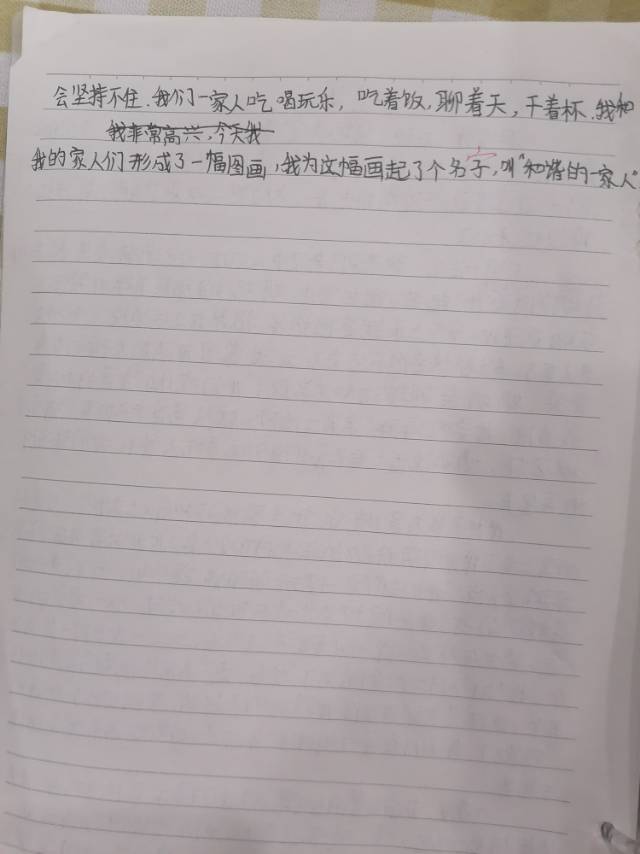 会坚持不住.我们一家人吃喝玩乐，吃着饭，聊着天，干着杯.我和
我非常高兴，今天我
我的家人们形成了一幅图画，我为这幅画起了个名子，叫“和谐的一家人”
字